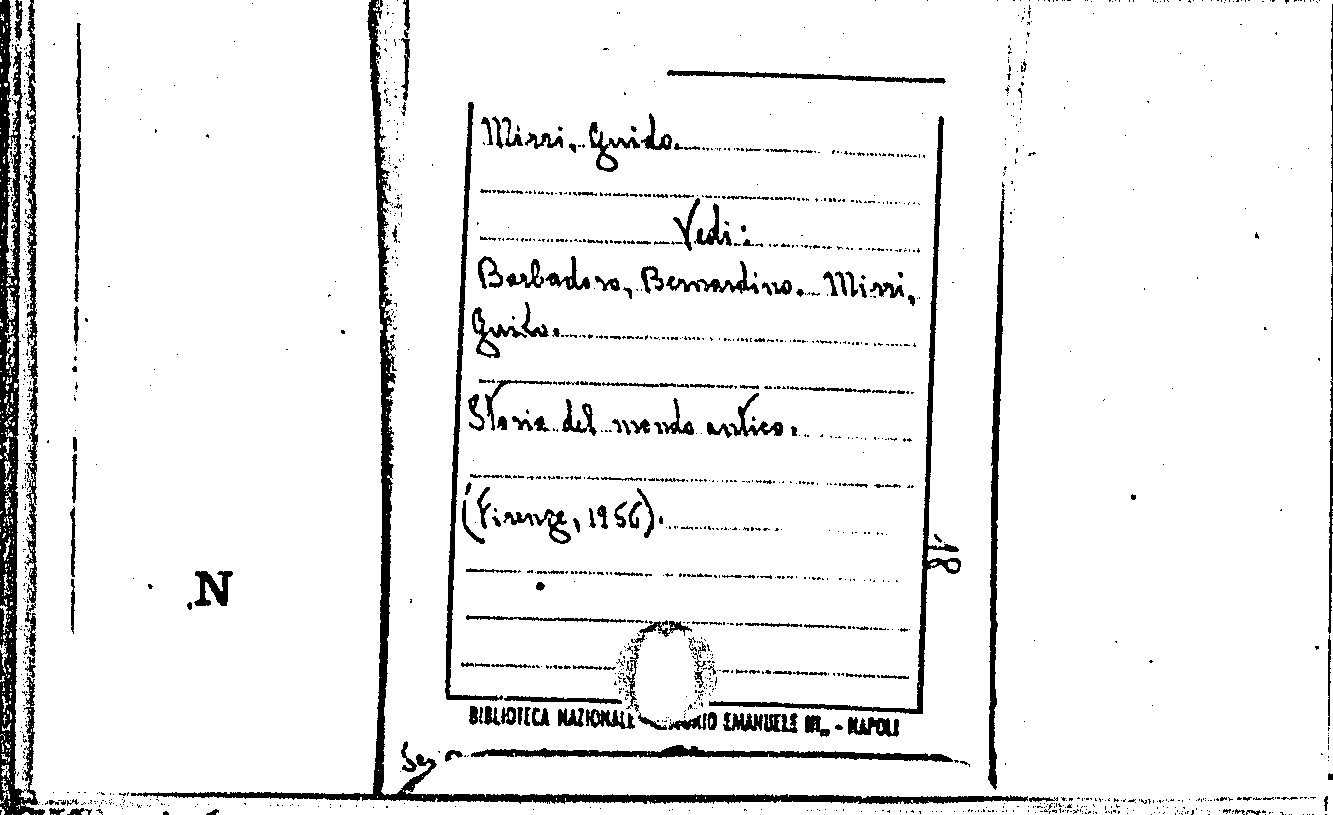 Mirri, Guido.
Vedi:
Barbadoro, Bernardino. Mirri,
Guido.
Storia del mondo antico.
(Firenze, 1956).
18
N
BIBLIOTECA NAZIONALE EMANUELE III - NAPOLI